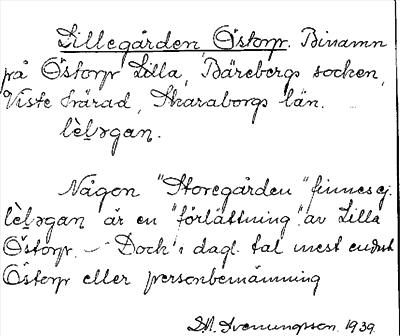 Lillegården, Östorp. Binamn
på Östorp Lilla, Bärebergs socken,
Viste härad, Skaraborgs län.
lèl̥əgan.
Någon "Storegården" finnes ej.
lèl̥əgan är en "förlättning" av Lilla
Östorp. – Dock i dagl. tal mest endast
Östorp eller personbenämning
Svenungsson. 1939.